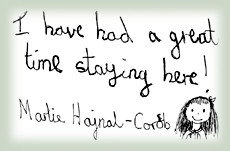 I have had a great
time staying here!
Marlie Hajnal-